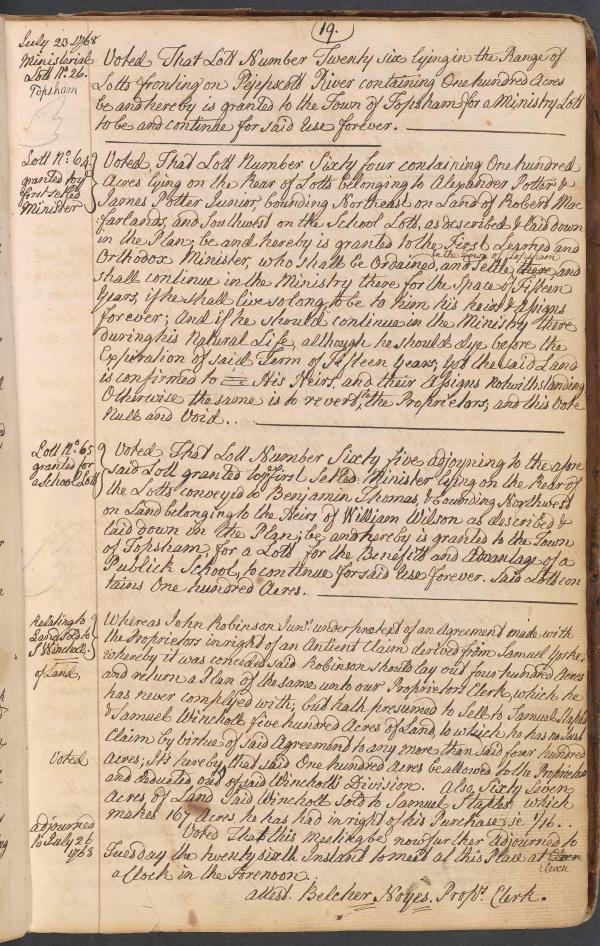 19.
July 23 1768
Ministerial
Lott No. 26.
Topsham
Voted That Lott Number Twenty six lying in the Range of
Lotts fronting on Pejepscott River containing One hundred Acres
be and hereby is granted to the Town of Topsham for a Ministry Lott
to be and continue for said Use forever.
Lott No. 64
granted to ye
first settled
Minister
Voted, That Lott Number Sixty four containing One hundred
Acres lying on the Rear of Lotts belonging to Alexander Potter &
James Potter Junior, bounding Northeast on Land of Robert Mac
farlands, and Southwest on the School Lott, as described & laid down
in the Plan; be and hereby is granted to the First Learned and
Orthodox Minister, who shall be Ordained, and settle there in the Town of Topsham and
shall continue in the Ministry there for the Space of Fifteen
Years, if he shall live so long, to be to him his heirs & Assigns
forever; And if he should continue in the Ministry there
during his Natural Life, although he should dye before the
Expiration of said Term of Fifteen Years; yet the said Land
is confirmed to His Heirs, and their Assigns notwithstanding
Otherwise the same is to revert to the Proprietors; and this Vote
Null and Void..
Lott No. 65
granted for
a School Lott
Voted That Lott Number Sixty five adjoyning to the afore
said Lott granted to ye first Settled Minister lying on the Rear of
the Lotts conveyed to Benjamin Thomas, & bounding Northwest
on Land belonging to the Heirs of William Wilson as described &
laid down in the Plan; be and hereby is granted to the Town
of Topsham, for a Lott for the Benefitt and Advantage of a
Publick School, to continue for said Use forever. Said Lott con
tains One hundred Acres.
Relating to
Land Sold to
S Winchell.
of Land,
Whereas John Robinson Junr. under pretext of an Agreement made with
the Proprietors in right of an Antient Claim derived from Samuel
whereby it was conceded said Robinson should lay out four hundred Acres
and return a Plan of the same unto our Proprietors Clerk, which he
has never complyed with, but hath presumed to Sell to Samuel Staples
& Samuel Winchell five hundred Acres of Land, to which he has no Just
Claim by virtue of said Agreement to any more than said four hundred
Voted
Acres; It's hereby that said One hundred Acres be allowed to the Proprietors
and deducted out of said Winchells Division. also, Sixty Seven
Acres of Land said Winchell sold to Samuel Staples which
makes 167 Acres he has had in right of his Purchase i.e 1/16..
adjourned
to July 26
1768
Voted That this Meeting be now further Adjourned to
Tuesday the twenty sixth Instant to meet at this Place at Eleven
Eleven
a Clock in the Forenoon..
attest. Belcher Noyes. Proprs. Clerk.